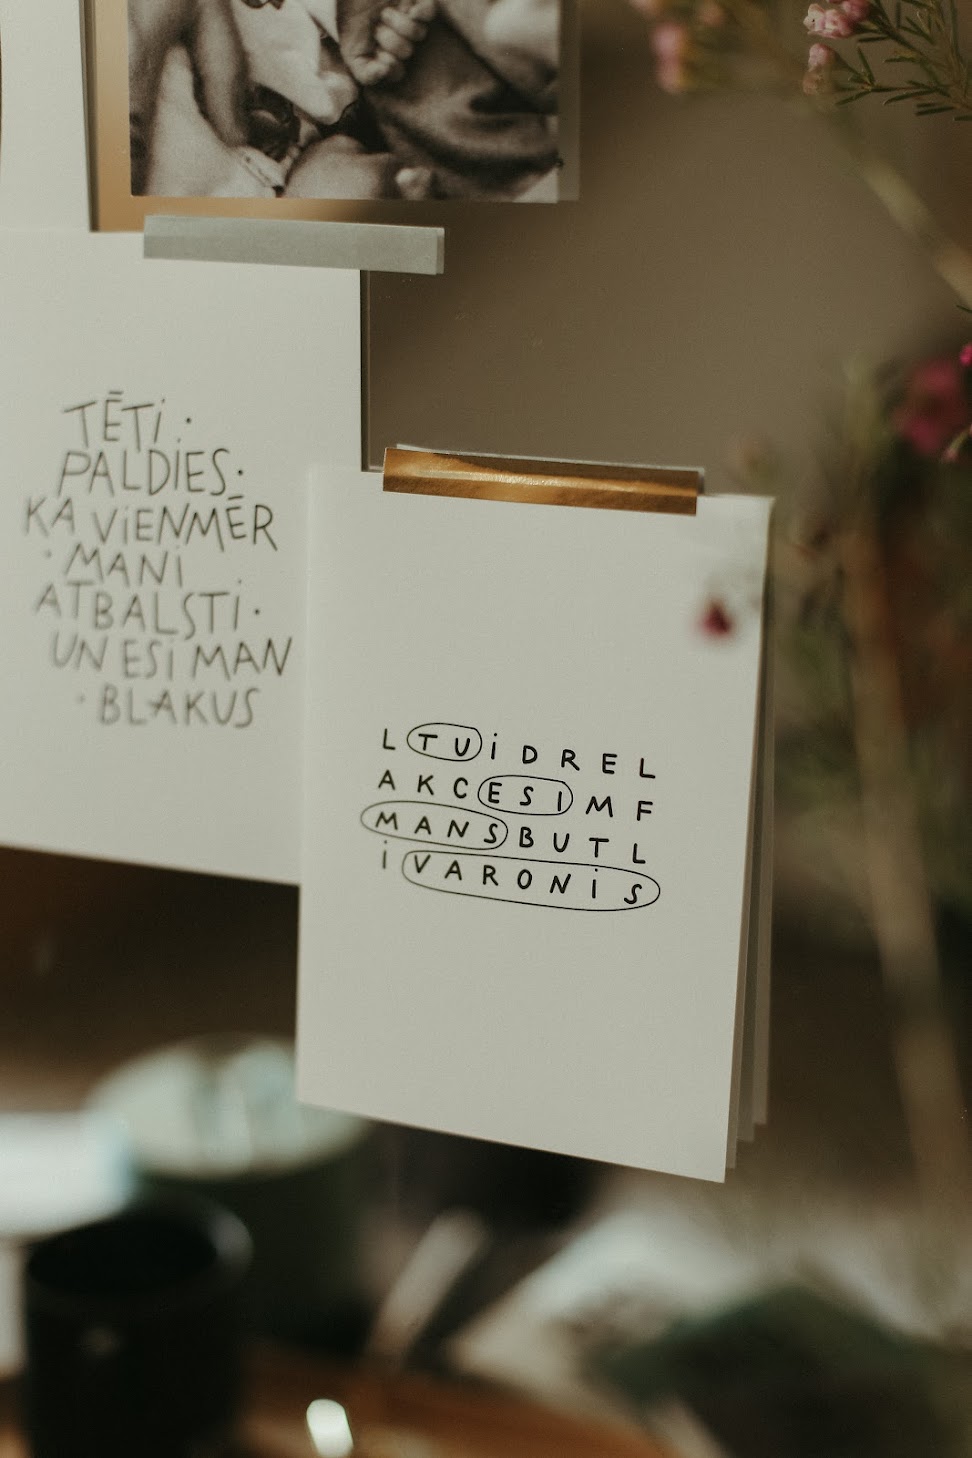 TĒTI ·
PALDIES ·
KA VIENMĒR
· MANI
ATBALSTI ·
UN ESI MAN
· BLAKUS
L T U I D R E L
A K C E S I M F
M A N S B U T L
I V A R O N I S